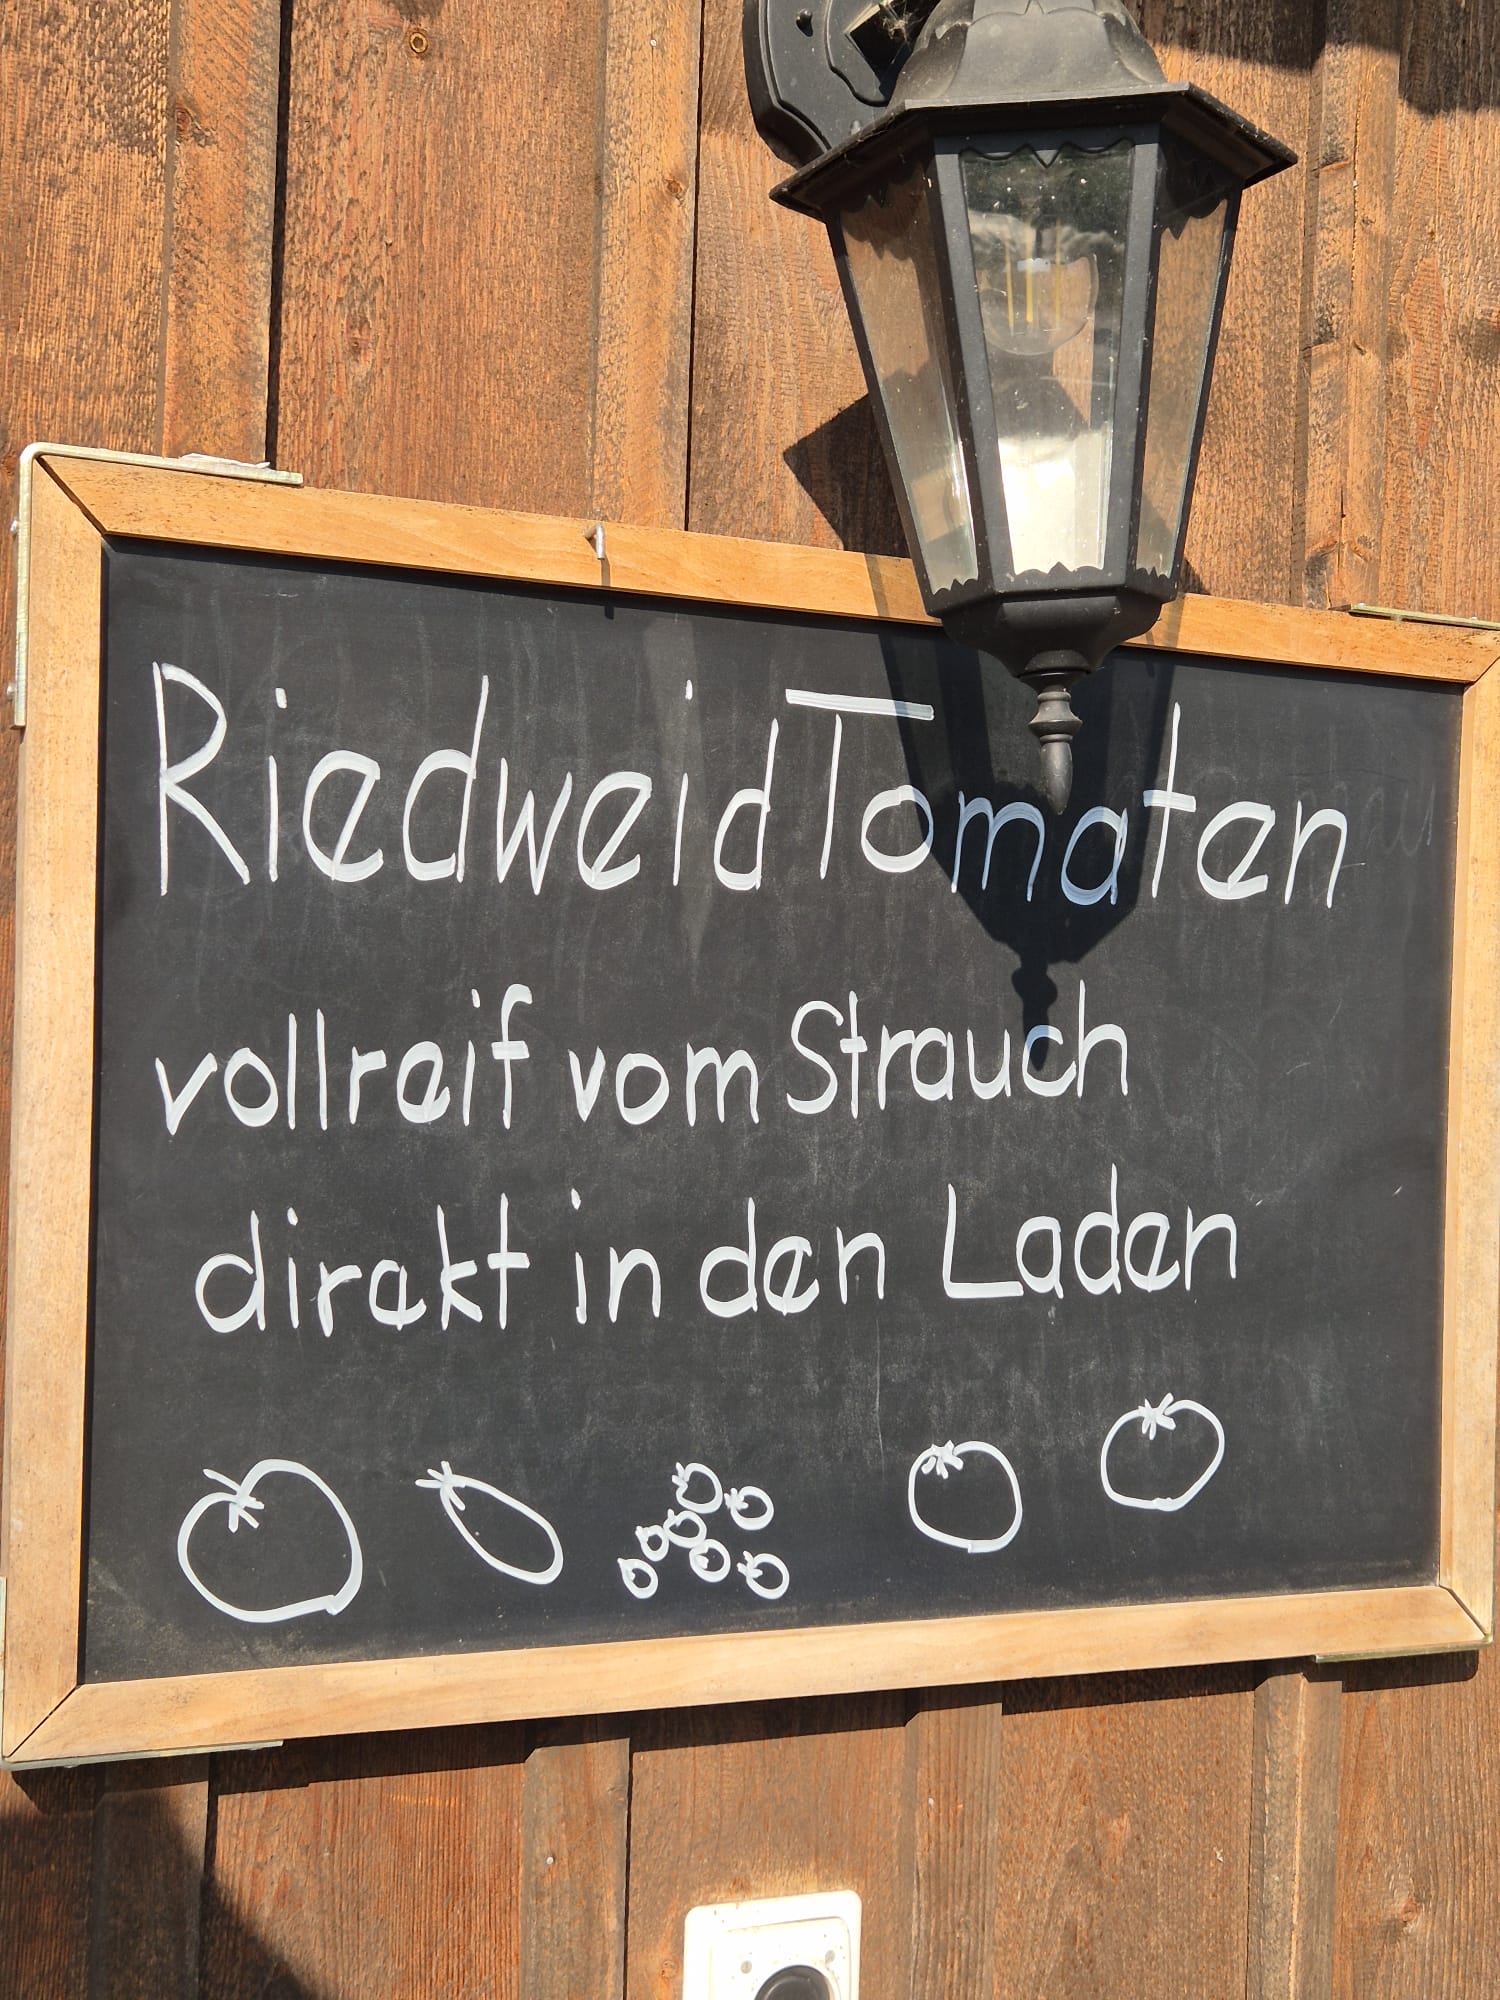 RiedweidTomaten
vollreif vom Strauch
direkt in den Laden